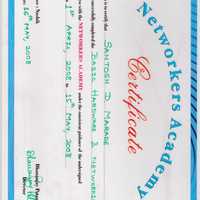 Networkers Academy
Certificate
is to certify that
SANTOSH D. MARADE
successfully completed the BASIC HARDWARE & NETWORKING
with the NETWORKERS ACADEMY under the conscious guidance of the undersigned
1ST APRIL, 2008 to 15TH MAY, 2008
: Nashik
: 16TH MAY, 2008
Director